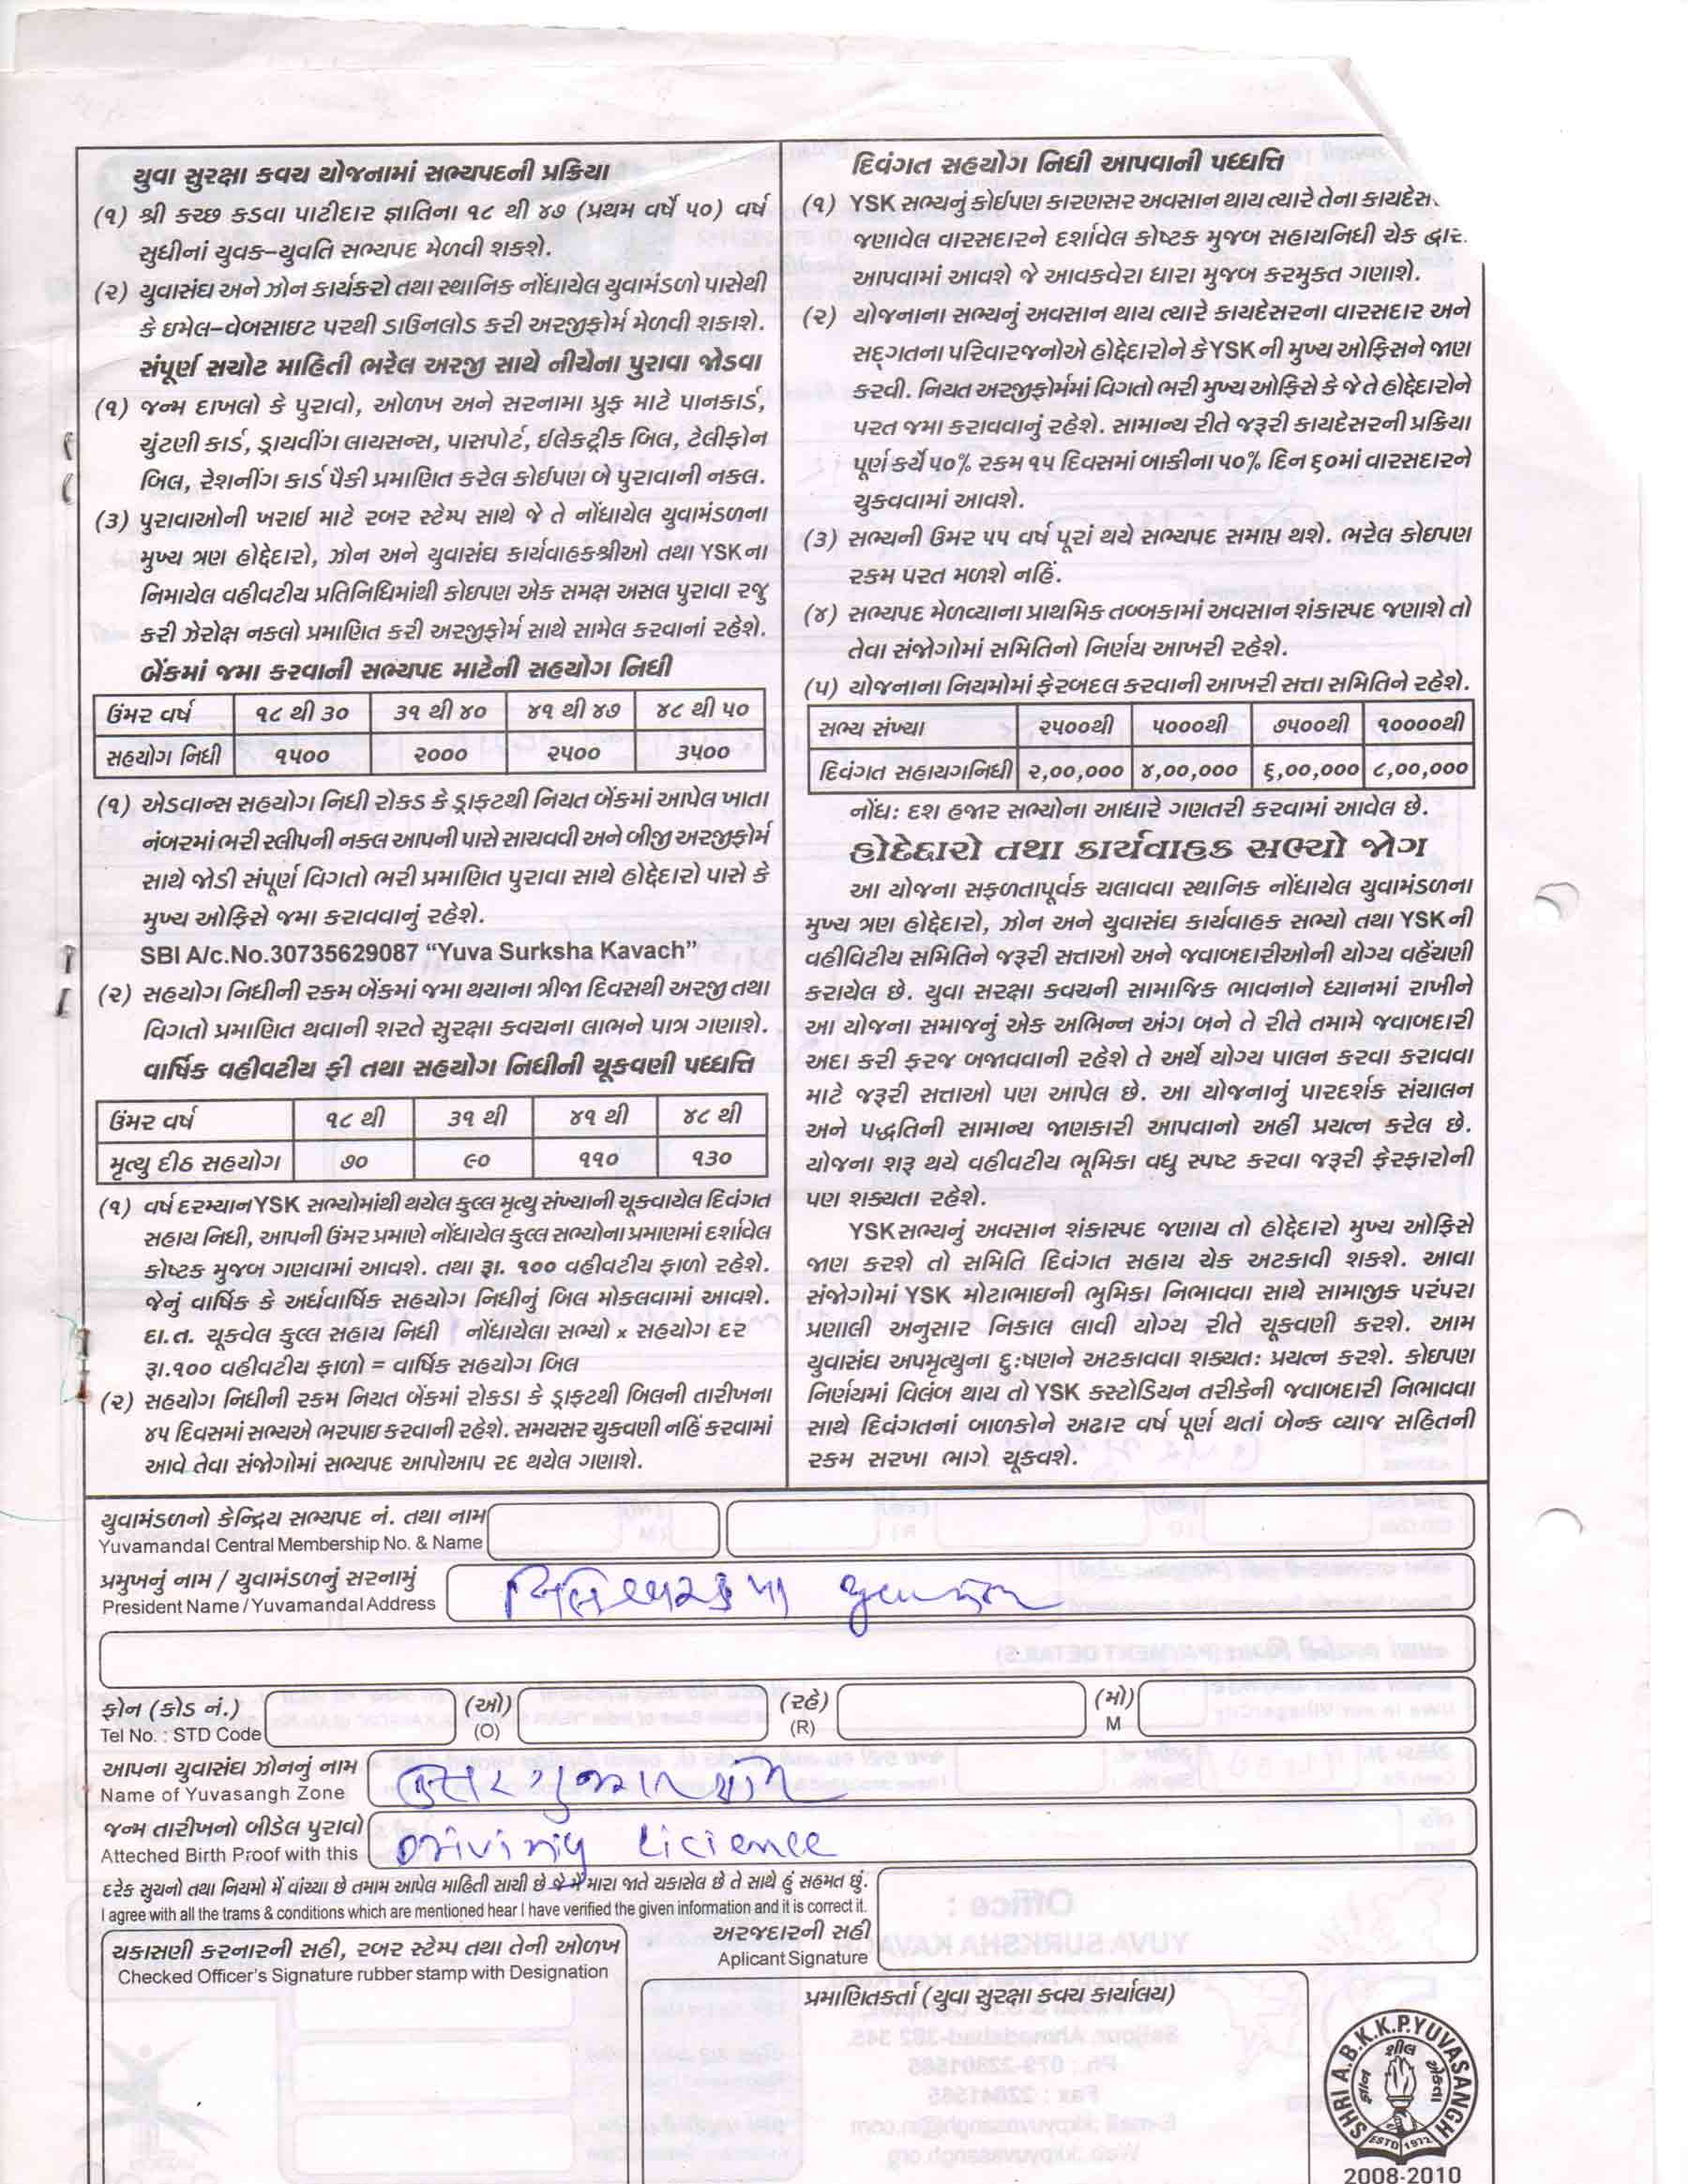 યુવા સુરક્ષા કવચ યોજનામાં સભ્યપદની પ્રક્રિયા
(૧) શ્રી કચ્છ કડવા પાટીદાર જ્ઞાતિના ૧૮ થી ૪૭ (પ્રથમ વર્ષે ૫૦) વર્ષ
સુધીનાં યુવક–યુવતિ સભ્યપદ મેળવી શકશે.
(૨) યુવાસંઘ અને ઝોન કાર્યકરો તથા સ્થાનિક નોંધાયેલ યુવામંડળો પાસેથી
કે ઇમેલ–વેબસાઇટ પરથી ડાઉનલોડ કરી અરજીફોર્મ મેળવી શકાશે.
સંપૂર્ણ સચોટ માહિતી ભરેલ અરજી સાથે નીચેના પુરાવા જોડવા
(૧) જન્મ દાખલો કે પુરાવો, ઓળખ અને સરનામા પ્રુફ માટે પાનકાર્ડ,
ચુંટણી કાર્ડ, ડ્રાયવીંગ લાયસન્સ, પાસપોર્ટ, ઈલેકટ્રીક બિલ, ટેલીફોન
બિલ, રેશનીંગ કાર્ડ પૈકી પ્રમાણિત કરેલ કોઈપણ બે પુરાવાની નકલ.
(૩) પુરાવાઓની ખરાઈ માટે રબર સ્ટેમ્પ સાથે જે તે નોંધાયેલ યુવામંડળના
મુખ્ય ત્રણ હોદ્દેદારો, ઝોન અને યુવાસંઘ કાર્યવાહકશ્રીઓ તથા YSKના
નિમાયેલ વહીવટીય પ્રતિનિધિમાંથી કોઇપણ એક સમક્ષ અસલ પુરાવા રજુ
કરી ઝેરોક્ષ નકલો પ્રમાણિત કરી અરજીફોર્મ સાથે સામેલ કરવાનાં રહેશે.
બેંકમાં જમા કરવાની સભ્યપદ માટેની સહયોગ નિધી
ઉંમર વર્ષ ૧૮ થી ૩૦ ૩૧ થી ૪૦ ૪૧ થી ૪૭ ૪૮ થી ૫૦
સહયોગ નિધી ૧૫૦૦ ૨૦૦૦ ૨૫૦૦ ૩૫૦૦
(૧) એડવાન્સ સહયોગ નિધી રોકડ કે ડ્રાફટથી નિયત બેંકમાં આપેલ ખાતા
નંબરમાં ભરી સ્લીપની નકલ આપની પાસે સાચવવી અને બીજી અરજીફોર્મ
સાથે જોડી સંપૂર્ણ વિગતો ભરી પ્રમાણિત પુરાવા સાથે હોદ્દેદારો પાસે કે
મુખ્ય ઓફિસે જમા કરાવવાનું રહેશે.
SBI A/c.No.30735629087 “Yuva Surksha Kavach”
(૨) સહયોગ નિધીની રકમ બેંકમાં જમા થયાના ત્રીજા દિવસથી અરજી તથા
વિગતો પ્રમાણિત થવાની શરતે સુરક્ષા કવચના લાભને પાત્ર ગણાશે.
વાર્ષિક વહીવટીય ફી તથા સહયોગ નિધીની ચૂકવણી પધ્ધતિ
ઉંમર વર્ષ ૧૮ થી ૩૧ થી ૪૧ થી ૪૮ થી
મૃત્યુ દીઠ સહયોગ ૭૦ ૯૦ ૧૧૦ ૧૩૦
(૧) વર્ષ દરમ્યાન YSK સભ્યોમાંથી થયેલ કુલ્લ મૃત્યુ સંખ્યાની ચૂકવાયેલ દિવંગત
સહાય નિધી, આપની ઉંમર પ્રમાણે નોંધાયેલ કુલ્લ સભ્યોના પ્રમાણમાં દર્શાવેલ
કોષ્ટક મુજબ ગણવામાં આવશે. તથા રૂા. ૧૦૦ વહીવટીય ફાળો રહેશે.
જેનું વાર્ષિક કે અર્ધવાર્ષિક સહયોગ નિધીનું બિલ મોકલવામાં આવશે.
દા.ત. ચૂકવેલ કુલ્લ સહાય નિધી નોંધાયેલા સભ્યો x સહયોગ દર
રૂા.૧૦૦ વહીવટીય ફાળો = વાર્ષિક સહયોગ બિલ
(૨) સહયોગ નિધીની રકમ નિયત બેંકમાં રોકડા કે ડ્રાફટથી બિલની તારીખના
૪૫ દિવસમાં સભ્યએ ભરપાઇ કરવાની રહેશે. સમયસર ચુકવણી નહિં કરવામાં
આવે તેવા સંજોગોમાં સભ્યપદ આપોઆપ રદ થયેલ ગણાશે.
દિવંગત સહયોગ નિધી આપવાની પધ્ધત્તિ
(૧) YSK સભ્યનું કોઈપણ કારણસર અવસાન થાય ત્યારે તેના કાયદેસ
જણાવેલ વારસદારને દર્શાવેલ કોષ્ટક મુજબ સહાયનિધી ચેક દ્વાર
આપવામાં આવશે જે આવકવેરા ધારા મુજબ કરમુક્ત ગણાશે.
(૨) યોજનાના સભ્યનું અવસાન થાય ત્યારે કાયદેસરના વારસદાર અને
સદ્દગતના પરિવારજનોએ હોદ્દેદારોને કે YSK ની મુખ્ય ઓફિસને જાણ
કરવી. નિયત અરજીફોર્મમાં વિગતો ભરી મુખ્ય ઓફિસે કે જે તે હોદ્દેદારોને
પરત જમા કરાવવાનું રહેશે. સામાન્ય રીતે જરૂરી કાયદેસરની પ્રક્રિયા
પૂર્ણ કર્યે ૫૦% રકમ ૧૫ દિવસમાં બાકીના ૫૦% દિન ૬૦માં વારસદારને
ચુકવવામાં આવશે.
(૩) સભ્યની ઉમર ૫૫ વર્ષ પૂરાં થયે સભ્યપદ સમાપ્ત થશે. ભરેલ કોઇપણ
રકમ પરત મળશે નહિં.
(૪) સભ્યપદ મેળવ્યાના પ્રાથમિક તબ્બકામાં અવસાન શંકાસ્પદ જણાશે તો
તેવા સંજોગોમાં સમિતિનો નિર્ણય આખરી રહેશે.
(૫) યોજનાના નિયમોમાં ફેરબદલ કરવાની આખરી સત્તા સમિતિને રહેશે.
સભ્ય સંખ્યા ૨૫૦૦થી ૫૦૦૦થી ૭૫૦૦થી ૧૦૦૦૦થી
દિવંગત સહાયગનિધી ૨,૦૦,૦૦૦ ૪,૦૦,૦૦૦ ૬,૦૦,૦૦૦ ૮,૦૦,૦૦૦
નોંધ: દશ હજાર સભ્યોના આધારે ગણતરી કરવામાં આવેલ છે.
હોદ્દેદારો તથા કાર્યવાહક સભ્યો જોગ
આ યોજના સફળતાપૂર્વક ચલાવવા સ્થાનિક નોંધાયેલ યુવામંડળના
મુખ્ય ત્રણ હોદ્દેદારો, ઝોન અને યુવાસંઘ કાર્યવાહક સભ્યો તથા YSK ની
વહીવિટીય સમિતિને જરૂરી સત્તાઓ અને જવાબદારીઓની યોગ્ય વહેંચણી
કરાયેલ છે. યુવા સરક્ષા કવચની સામાજિક ભાવનાને ધ્યાનમાં રાખીને
આ યોજના સમાજનું એક અભિન્ન અંગ બને તે રીતે તમામે જવાબદારી
અદા કરી ફરજ બજાવવાની રહેશે તે અર્થે યોગ્ય પાલન કરવા કરાવવા
માટે જરૂરી સત્તાઓ પણ આપેલ છે. આ યોજનાનું પારદર્શક સંચાલન
અને પદ્ધતિની સામાન્ય જાણકારી આપવાનો અહીં પ્રયત્ન કરેલ છે.
યોજના શરૂ થયે વહીવટીય ભૂમિકા વધુ સ્પષ્ટ કરવા જરૂરી ફેરફારોની
પણ શક્યતા રહેશે.
YSK સભ્યનું અવસાન શંકાસ્પદ જણાય તો હોદ્દેદારો મુખ્ય ઓફિસે
જાણ કરશે તો સમિતિ દિવંગત સહાય ચેક અટકાવી શકશે. આવા
સંજોગોમાં YSK મોટાભાઇની ભુમિકા નિભાવવા સાથે સામાજીક પરંપરા
પ્રણાલી અનુસાર નિકાલ લાવી યોગ્ય રીતે ચૂકવણી કરશે. આમ
યુવાસંઘ અપમૃત્યુના દુ:ષણને અટકાવવા શક્યત: પ્રયત્ન કરશે. કોઇપણ
નિર્ણયમાં વિલંબ થાય તો YSK કસ્ટોડિયન તરીકેની જવાબદારી નિભાવવા
સાથે દિવંગતનાં બાળકોને અઢાર વર્ષ પૂર્ણ થતાં બેન્ક વ્યાજ સહિતની
રકમ સરખા ભાગે ચૂકવશે.
યુવામંડળનો કેન્દ્રિય સભ્યપદ નં. તથા નામ
Yuvamandal Central Membership No. & Name
પ્રમુખનું નામ / યુવામંડળનું સરનામું
President Name / Yuvamandal Address
ફોન (કોડ નં.) (ઓ) (રહે) (મો)
Tel No. : STD Code (O) (R) M
આપના યુવાસંઘ ઝોનનું નામ ઉત્તર ગુજરાત ઝોન
Name of Yuvasangh Zone
જન્મ તારીખનો બીડેલ પુરાવો
Atteched Birth Proof with this Driving Licience
દરેક સુચનો તથા નિયમો મેં વાંચ્યા છે તમામ આપેલ માહિતી સાચી છે જે મેં મારા જાતે ચકાસેલ છે તે સાથે હું સહમત છું.
I agree with all the trams & conditions which are mentioned hear I have verified the given information and it is correct it.
અરજદારની સહી
Aplicant Signature
ચકાસણી કરનારની સહી, રબર સ્ટેમ્પ તથા તેની ઓળખ
Checked Officer's Signature rubber stamp with Designation
પ્રમાણિતકર્તા (યુવા સુરક્ષા કવચ કાર્યાલય)
SHRI A.B.K.K.P.YUVASANGH
ESTD 1972
2008-2010